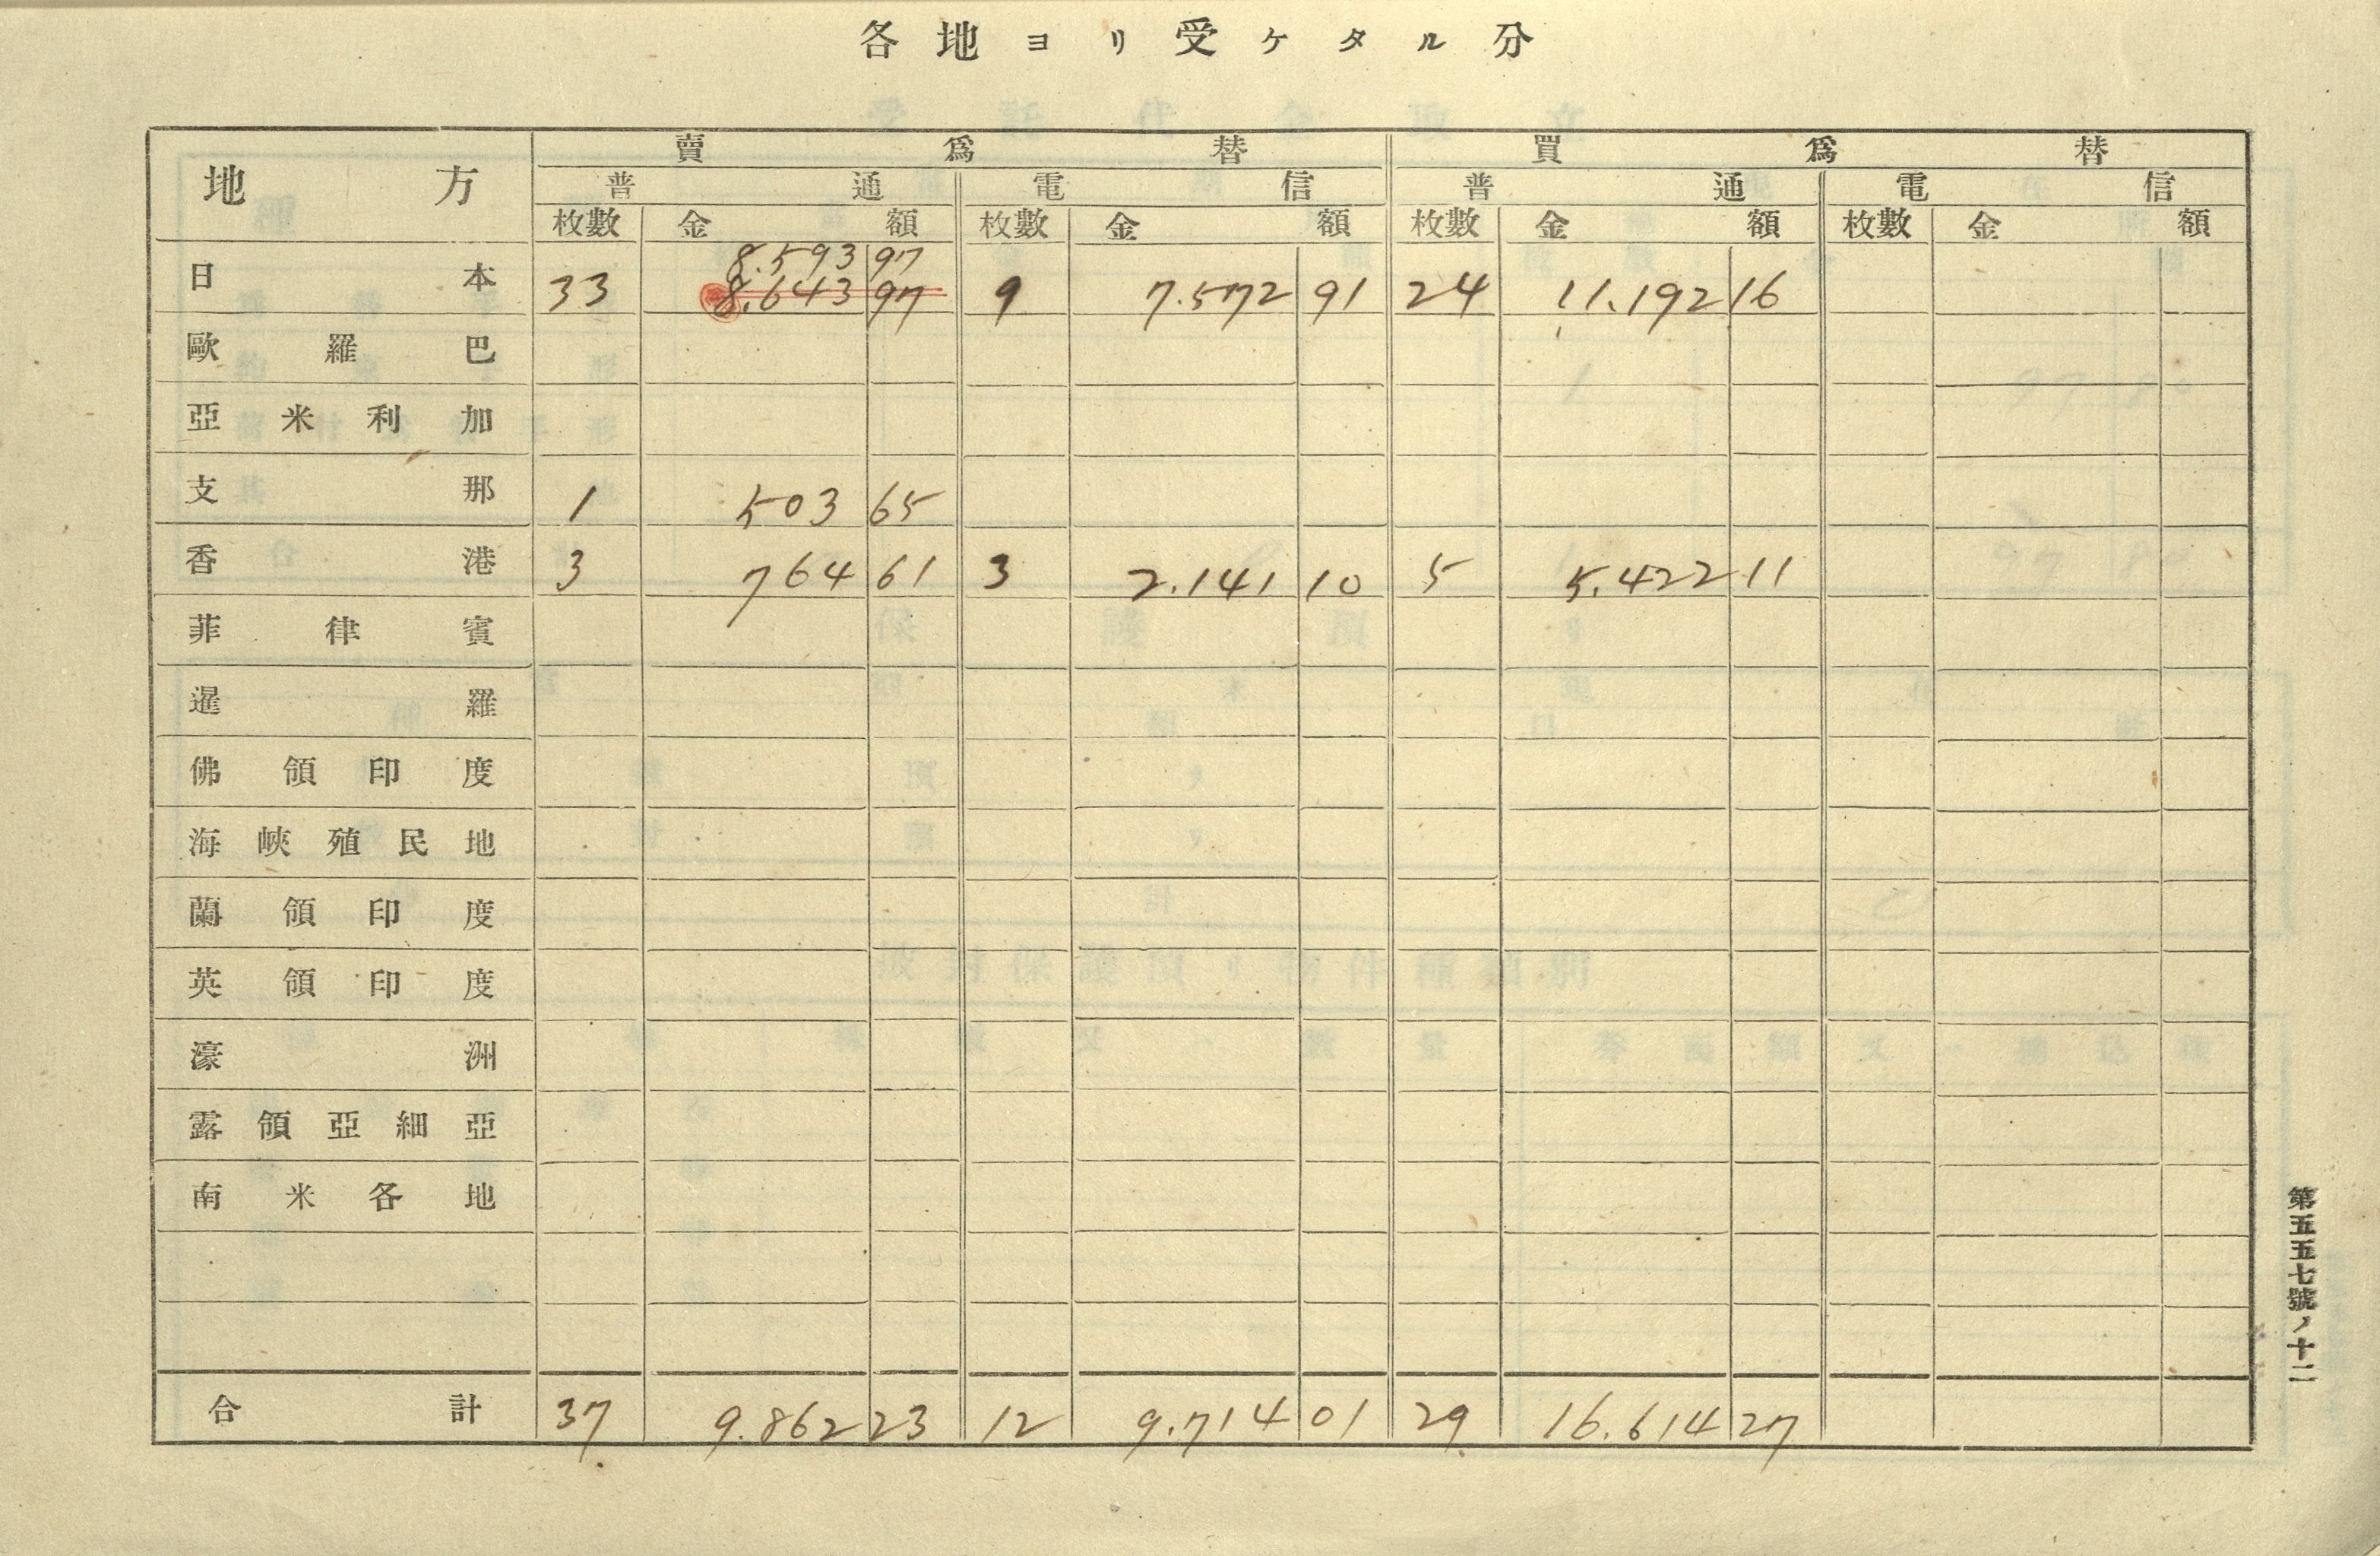 各地ヨリ受ケタル分
地方 賣爲替 買爲替
普通 電信 普通 電信
枚數 金額 枚數 金額 枚數 金額 枚數 金額
8.593 97
日本 33 8.643 97 9 7.572 91 24 11.192 16
歐羅巴
亞米利加
支那 1 503 65
香港 3 764 61 3 2.141 10 5 5.422 11
菲律賓
暹羅
佛領印度
海峽殖民地
蘭領印度
英領印度
濠洲
露領亞細亞
南米各地
合計 37 9.862 23 12 9.714 01 29 16.614 27
第五五七號ノ十二